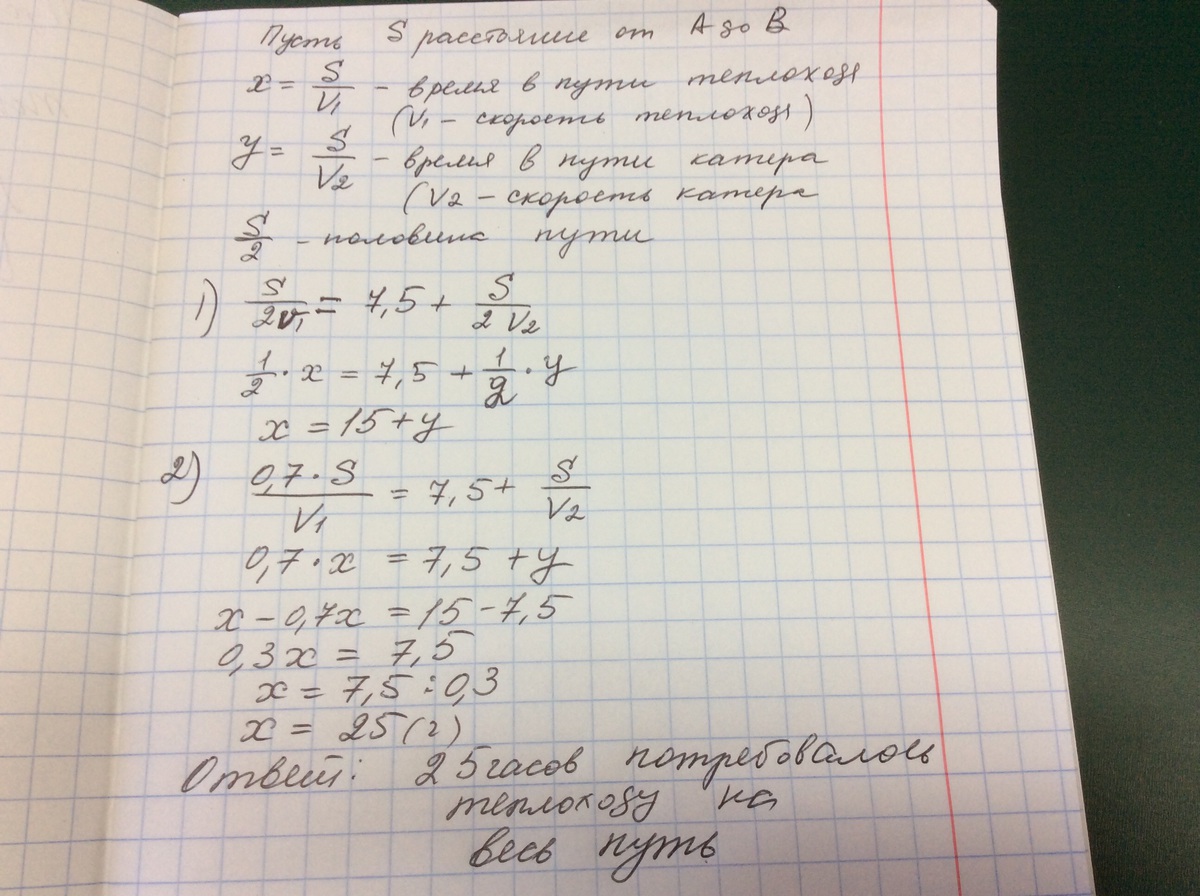 Пусть S расстояние от А до В
x = S/V₁ – время в пути теплохода
(V₁ – скорость теплохода)
y = S/V₂ – время в пути катера
(V₂ – скорость катера
S/2 – половина пути
1) S/2V₁ = 7,5 + S/2V₂
1/2 · x = 7,5 + 1/2 · y
x = 15 + y
2) 0,7 · S/V₁ = 7,5 + S/V₂
0,7 · x = 7,5 + y
x – 0,7x = 15 – 7,5
0,3x = 7,5
x = 7,5 : 0,3
x = 25 (ч)
Ответ: 25 часов потребовалось
теплоходу на
весь путь